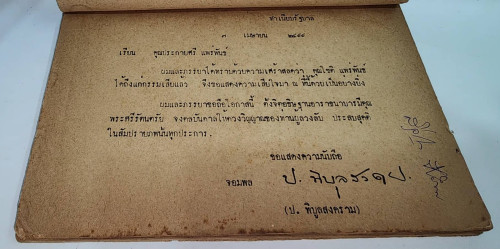 ทำเนียบรัฐบาล
๓ เมษายน ๒๔๙๙
เรียน คุณประกายศรี แพร่พันธ์
ผมและภรรยาได้ทราบด้วยความเศร้าสลดว่า คุณโชติ แพร่พันธ์
ได้ถึงแก่กรรมเสียแล้ว จึงขอแสดงความเสียใจมา ณ ที่นี้ด้วยเป็นอย่างยิ่ง
ผมและภรรยาขอถือโอกาสนี้ ตั้งจิตอธิษฐานอาราธนาบารมีคุณ
พระศรีรัตนตรัย จงดลบันดาลให้ดวงวิญญาณของท่านผู้ล่วงลับ ประสบสุคติ
ในสัมปรายภพนั้นทุกประการ.
ขอแสดงความนับถือ
จอมพล ป. พิบูลสงคราม
(ป. พิบูลสงคราม)